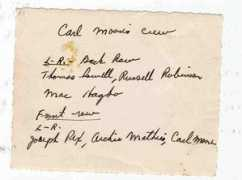 Carl Moore's crew
L-R- Back Row
Thomas Sewell, Russell Robinson
Mac Hagbo
Front row
L-R.
Joseph Pix, Archie Mathis, Carl Moore